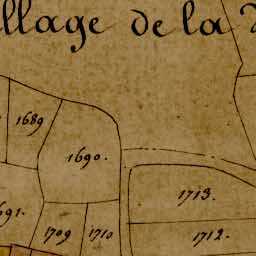 llage de la
1689
1690.
1713.
691.
1709
1710
1712.